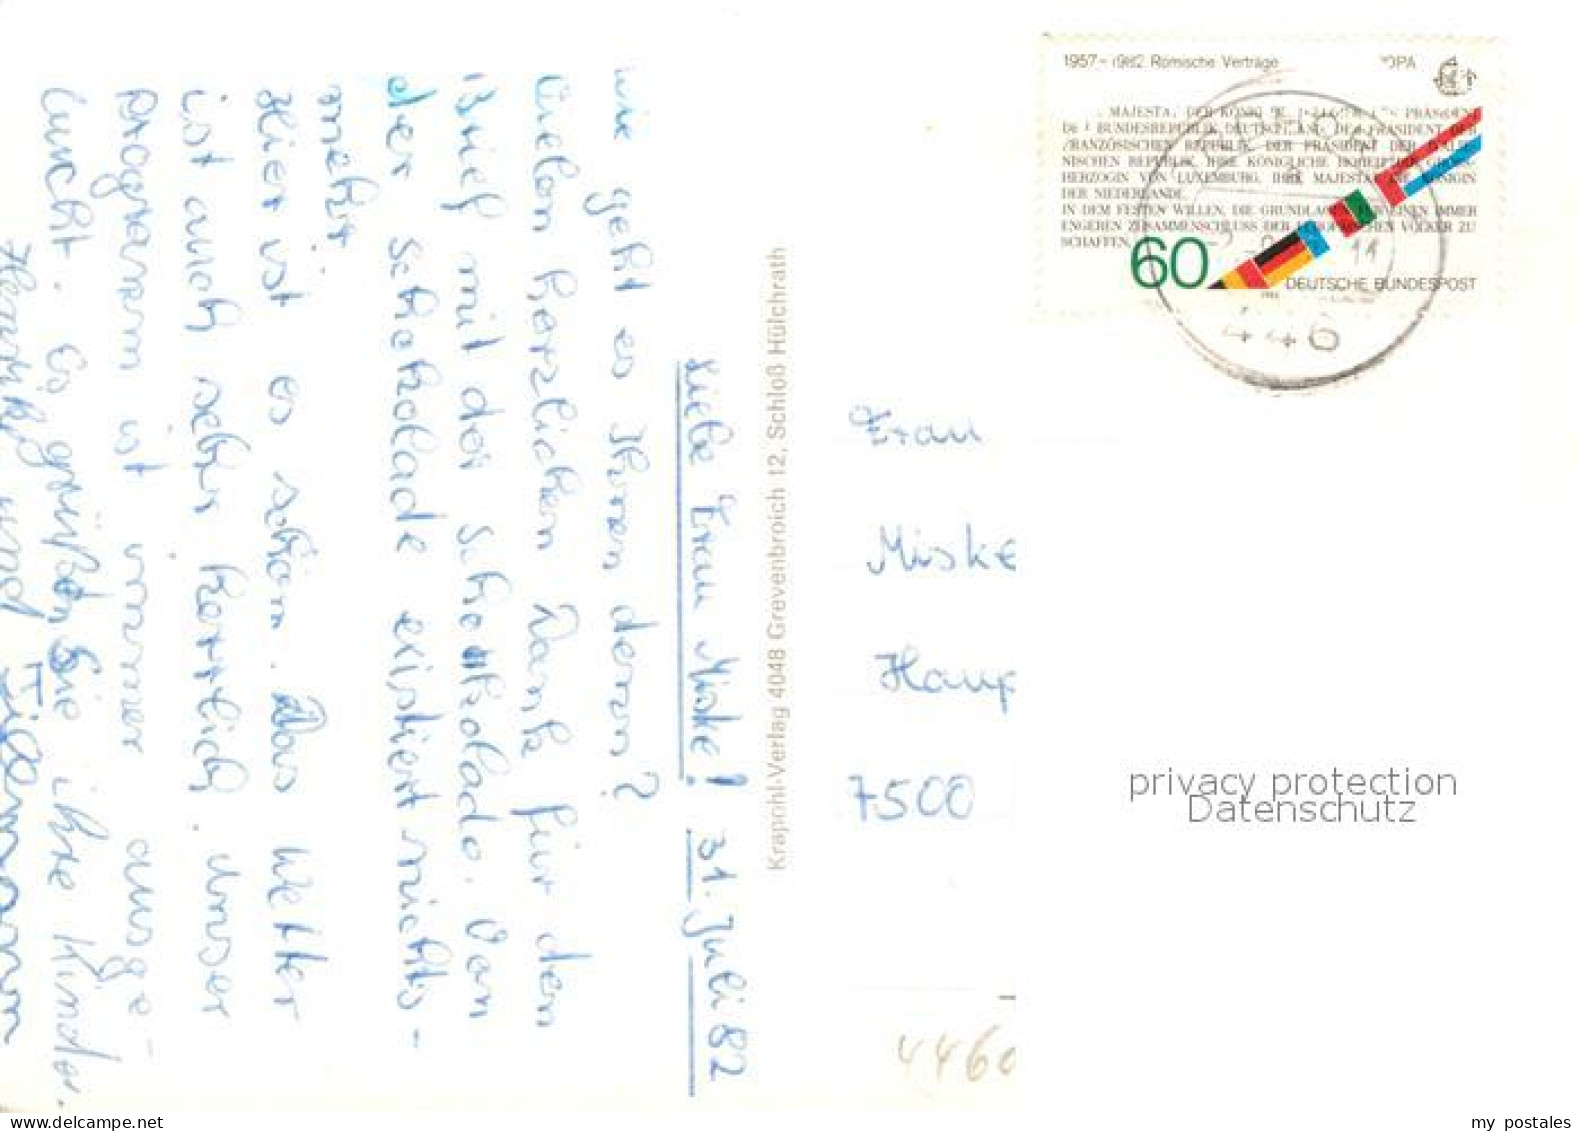 Liebe Frau Miske! 31. Juli 82
wie geht es Ihnen denn?
Vielen herzlichen Dank für den
Brief mit der Schokolade. Von
der Schokolade existiert nichts-
mehr.
Hier ist es schön. Das Wetter
ist auch sehr herrlich. Unser
Programm ist immer ausge-
bucht. Es grüßen Sie ihre Kinder.
und Tillmann
Krapohl-Verlag 4048 Grevenbroich 12, Schloß Hülchrath
1957-1982 Römische Verträge OPA
MAJESTÄ DER KÖNIG DER PRÄSIDENT
DER BUNDESREPUBLIK DEUTSCHLAND, DER PRÄSIDENT DER
FRANZÖSISCHEN REPUBLIK, DER PRÄSIDENT DER ITALIE-
NISCHEN REPUBLIK, IHRE KÖNIGLICHE HOHEIT DIE GROSS-
HERZOGIN VON LUXEMBURG, IHRE MAJESTÄT DIE KÖNIGIN
DER NIEDERLANDE,
IN DEM FESTEN WILLEN, DIE GRUNDLAGEN FÜR EINEN IMMER
ENGEREN ZUSAMMENSCHLUSS DER EUROPÄISCHEN VÖLKER ZU
SCHAFFEN,
60
DEUTSCHE BUNDESPOST
1982
11
446
Frau
Miske
Haup
7500
privacy protection
Datenschutz
4460
www.delcampe.net
my postales